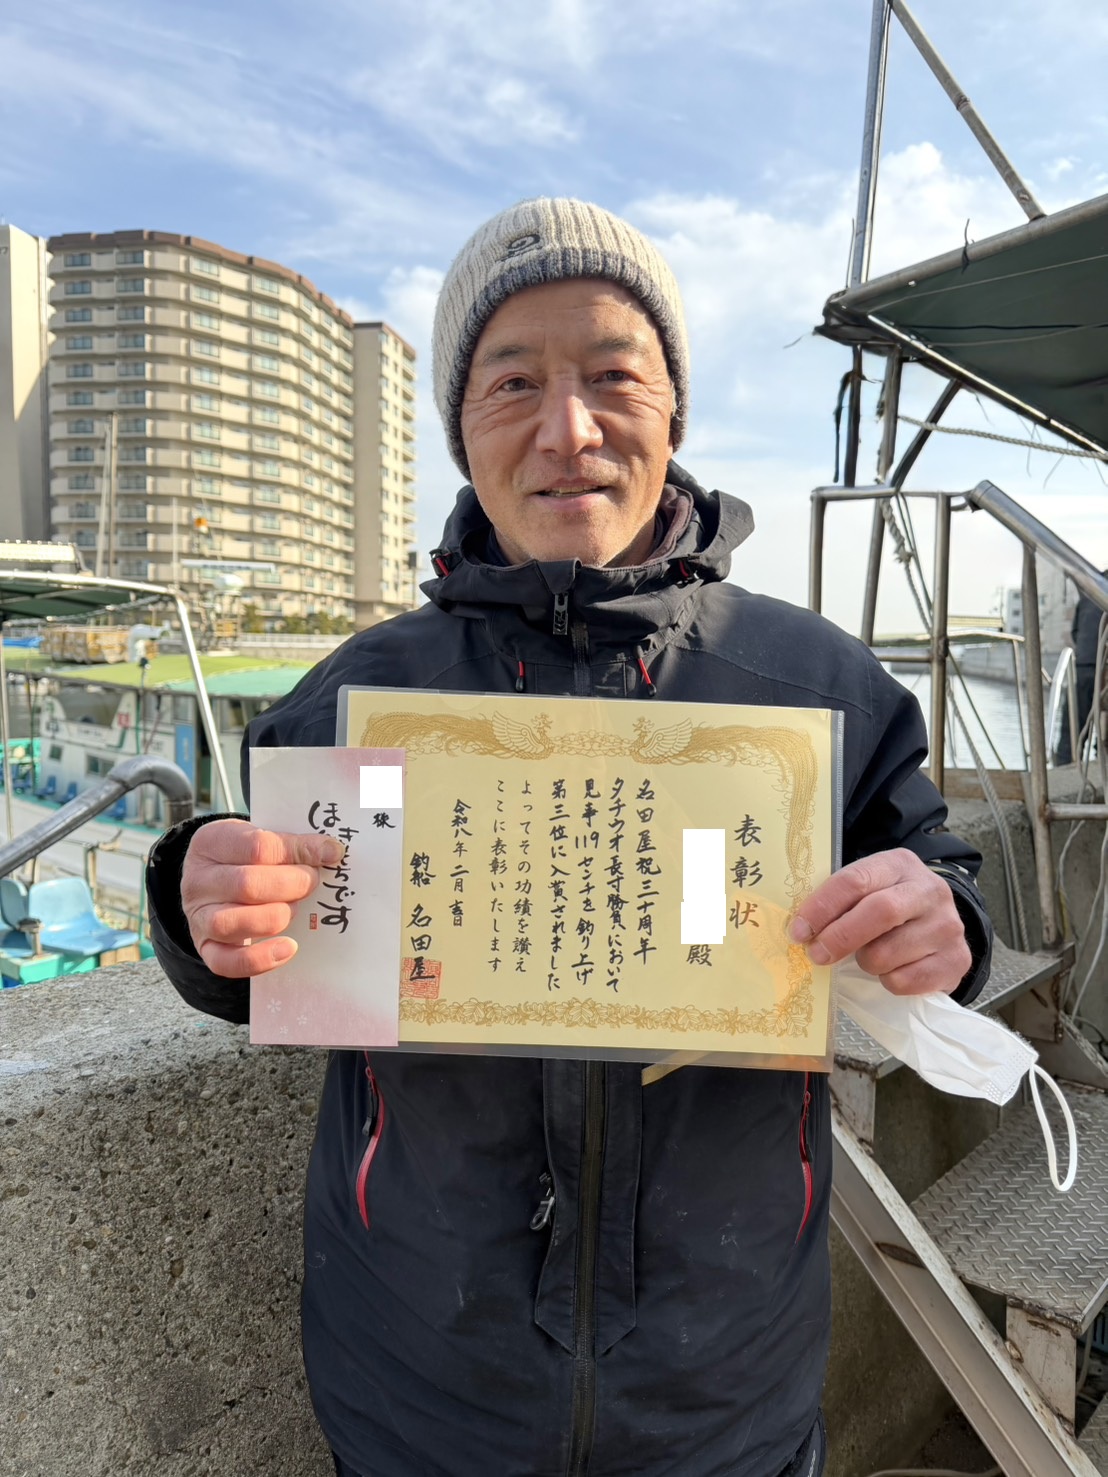 表彰状
殿
名田屋祝三十周年
タチウオ長寸勝負において
見事119センチを釣り上げ
第三位に入賞されました
よってその功績を讃え
ここに表彰いたします
令和八年二月吉日
釣船 名田屋
様
きもちです